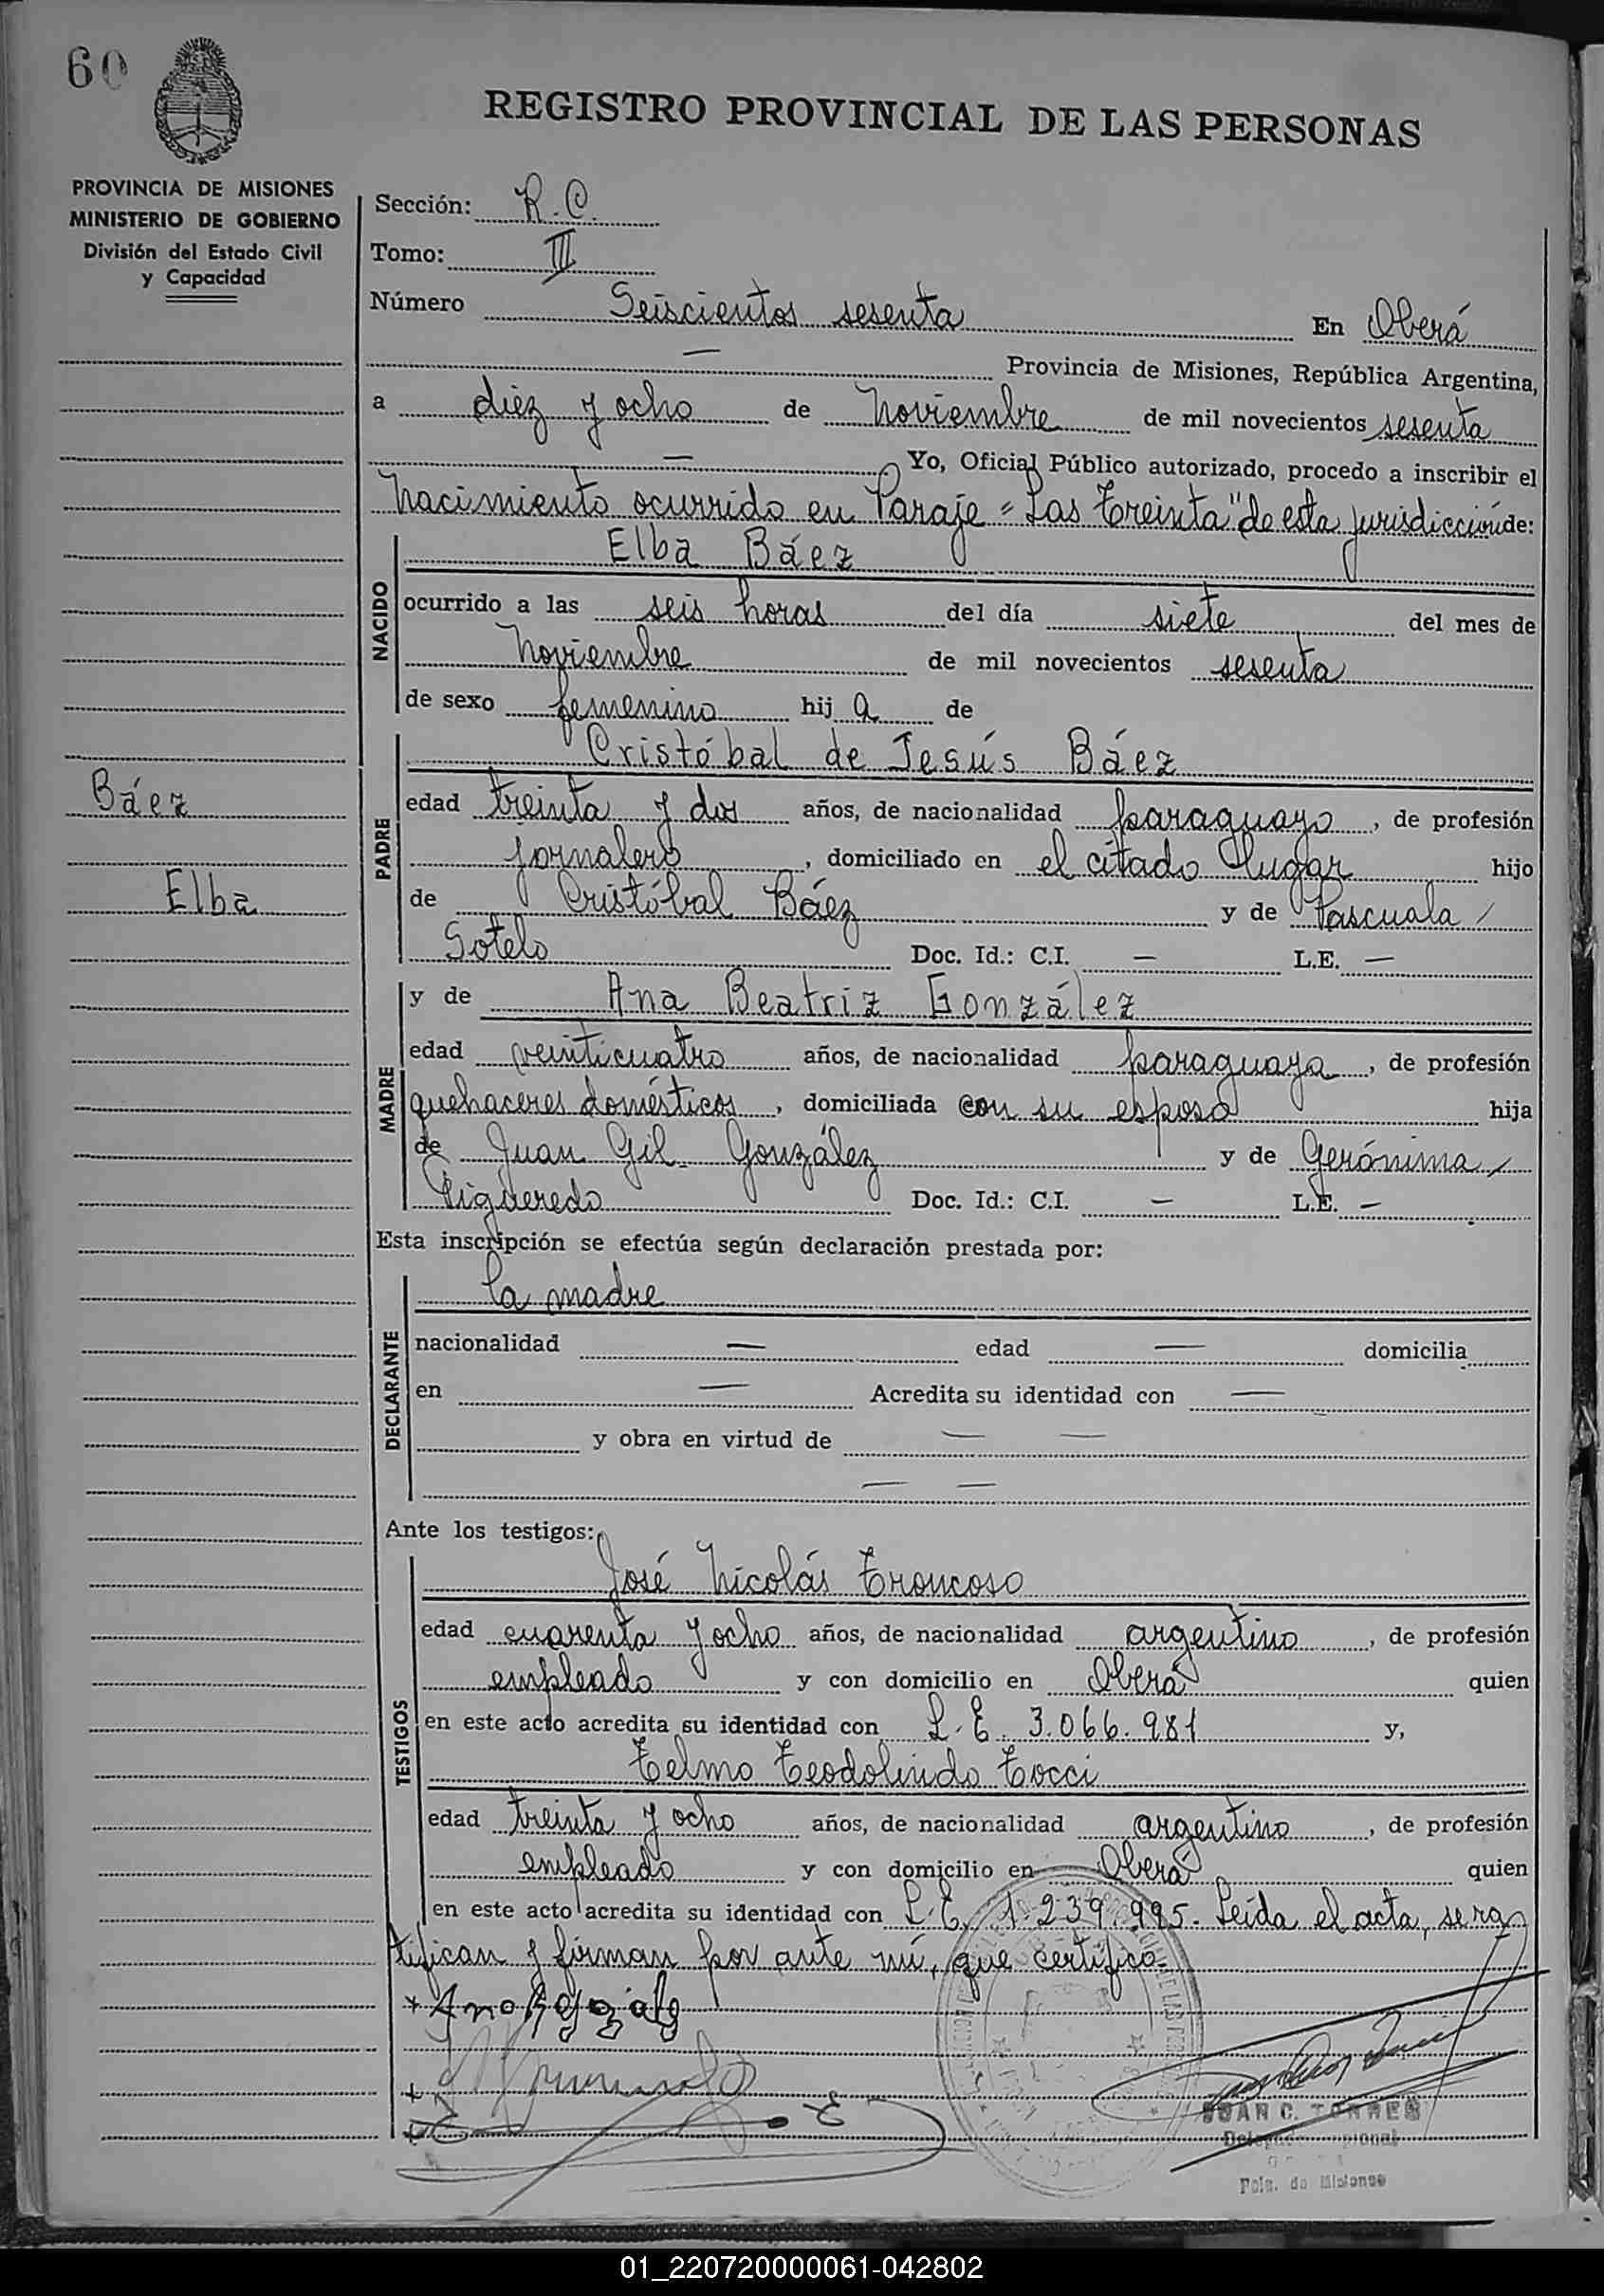 60
REGISTRO PROVINCIAL DE LAS PERSONAS
PROVINCIA DE MISIONES
MINISTERIO DE GOBIERNO
División del Estado Civil
y Capacidad
Sección: R.C.
Tomo: III
Número Seiscientos sesenta En Oberá
— Provincia de Misiones, República Argentina,
a diez y ocho de Noviembre de mil novecientos sesenta
— Yo, Oficial Público autorizado, procedo a inscribir el
Nacimiento ocurrido en Paraje "Las Treinta" de esta jurisdicción de:
NACIDO
Elba Báez
ocurrido a las seis horas del día siete del mes de
Noviembre de mil novecientos sesenta
de sexo femenino hij a de
Báez
Elba
PADRE
Cristóbal de Jesús Báez
edad treinta y dos años, de nacionalidad paraguayo, de profesión
jornalero, domiciliado en el citado lugar hijo
de Cristóbal Báez y de Pascuala /
Sotelo Doc. Id.: C.I. — L.E. —
MADRE
y de Ana Beatriz González
edad veinticuatro años, de nacionalidad paraguaya, de profesión
quehaceres domésticos, domiciliada con su esposo hija
de Juan Gil González y de Gerónima /
Figueredo Doc. Id.: C.I. — L.E. —
Esta inscripción se efectúa según declaración prestada por:
DECLARANTE
la madre
nacionalidad — edad — domicilia
en — Acredita su identidad con —
y obra en virtud de — —
— —
Ante los testigos:
TESTIGOS
José Nicolás Troncoso
edad cuarenta y ocho años, de nacionalidad argentino, de profesión
empleado y con domicilio en Oberá quien
en este acto acredita su identidad con L.E. 3.066.981 y,
Telmo Teodolindo Tocci
edad treinta y ocho años, de nacionalidad argentino, de profesión
empleado y con domicilio en Oberá quien
en este acto acredita su identidad con L.E. 1.239.995. Leída el acta, se ra
tifican y firman por ante mí, que certifico.
JUAN C. TORRES
Pcia. de Misiones
01_220720000061-042802